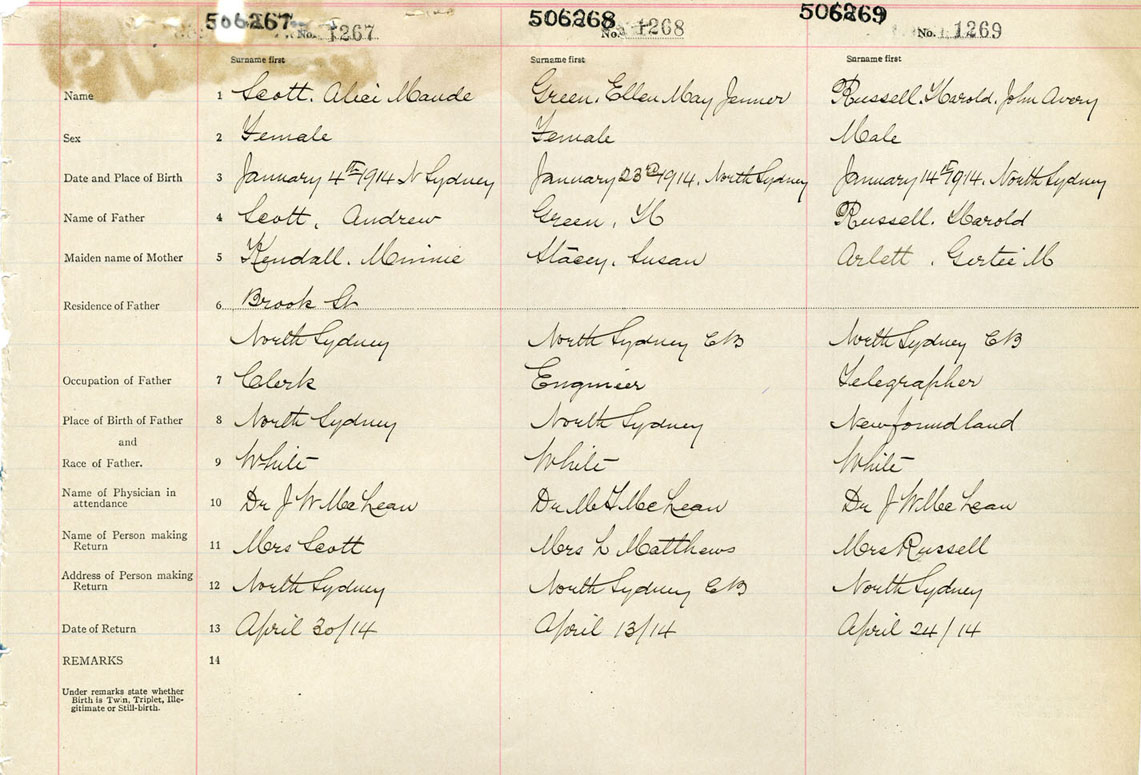 506267 506268 506269
No. 1267 No. 1268 No. 1269
Surname first Surname first Surname first
Name 1 Scott. Alice Maude Green. Ellen May Jenner Russell. Harold. John Avery
Sex 2 Female Female Male
Date and Place of Birth 3 January 4th 1914 N Sydney January 23rd 1914. North Sydney January 14th 1914. North Sydney
Name of Father 4 Scott, Andrew Green, H Russell. Harold
Maiden name of Mother 5 Kendall. Minnie Stacey. Susan Arlett. Gertie M
Residence of Father 6 Brook St
North Sydney North Sydney CB North Sydney CB
Occupation of Father 7 Clerk Engineer Telegrapher
Place of Birth of Father 8 North Sydney North Sydney Newfoundland
and
Race of Father. 9 White White White
Name of Physician in
attendance 10 Dr J W McLean Dr McLean Dr J W McLean
Name of Person making
Return 11 Mrs Scott Mrs L Matthews Mrs Russell
Address of Person making
Return 12 North Sydney North Sydney CB North Sydney
Date of Return 13 April 30/14 April 13/14 April 24/14
REMARKS 14
Under remarks state whether
Birth is Twin, Triplet, Ille-
gitimate or Still-birth.